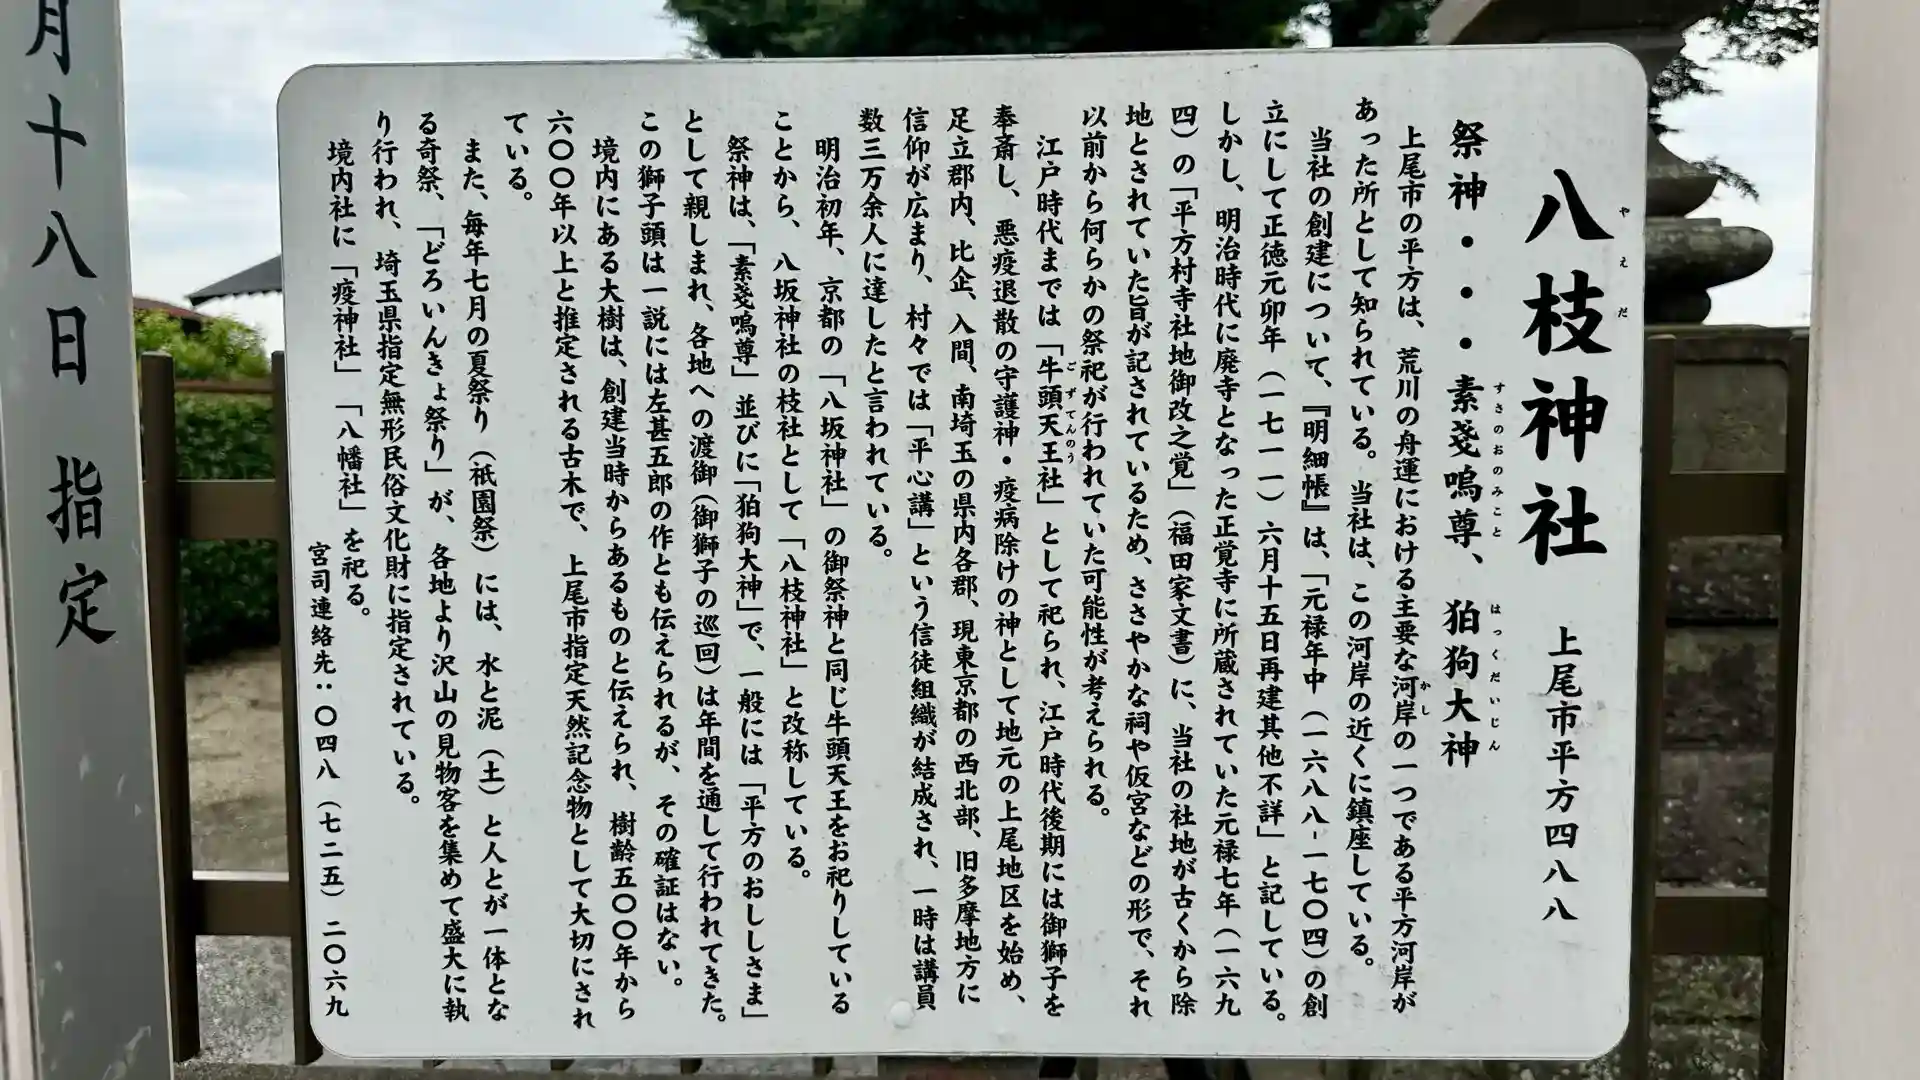 八枝神社　上尾市平方四八八
やえだ
祭神・・・素戔嗚尊、狛狗大神
すさのおのみこと　はっくだいじん
上尾市の平方は、荒川の舟運における主要な河岸の一つである平方河岸が
かし
あった所として知られている。当社は、この河岸の近くに鎮座している。
当社の創建について、『明細帳』は、「元禄年中（一六八八-一七〇四）の創
立にして正徳元卯年（一七一一）六月十五日再建其他不詳」と記している。
しかし、明治時代に廃寺となった正覚寺に所蔵されていた元禄七年（一六九
四）の「平方村寺社地御改之覚」（福田家文書）に、当社の社地が古くから除
地とされていた旨が記されているため、ささやかな祠や仮宮などの形で、それ
以前から何らかの祭祀が行われていた可能性が考えられる。
江戸時代までは「牛頭天王社」として祀られ、江戸時代後期には御獅子を
ごずてんのう
奉斎し、悪疫退散の守護神・疫病除けの神として地元の上尾地区を始め、
足立郡内、比企、入間、南埼玉の県内各郡、現東京都の西北部、旧多摩地方に
信仰が広まり、村々では「平心講」という信徒組織が結成され、一時は講員
数三万余人に達したと言われている。
明治初年、京都の「八坂神社」の御祭神と同じ牛頭天王をお祀りしている
ことから、八坂神社の枝社として「八枝神社」と改称している。
祭神は、「素戔嗚尊」並びに「狛狗大神」で、一般には「平方のおししさま」
として親しまれ、各地への渡御（御獅子の巡回）は年間を通して行われてきた。
この獅子頭は一説には左甚五郎の作とも伝えられるが、その確証はない。
境内にある大樹は、創建当時からあるものと伝えられ、樹齢五〇〇年から
六〇〇年以上と推定される古木で、上尾市指定天然記念物として大切にされ
ている。
また、毎年七月の夏祭り（祇園祭）には、水と泥（土）と人とが一体とな
る奇祭、「どろいんきょ祭り」が、各地より沢山の見物客を集めて盛大に執
り行われ、埼玉県指定無形民俗文化財に指定されている。
境内社に「疫神社」「八幡社」を祀る。
宮司連絡先：〇四八（七二五）二〇六九
月十八日　指定